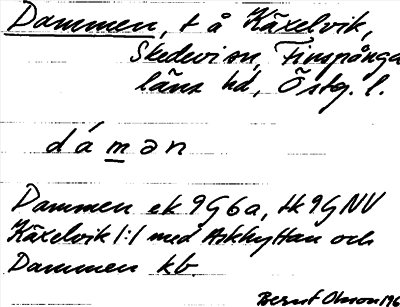 Dammen, t å Käxelvik,
Skedevi sn, Finspånga
läns hd, Östg. l.
dámən
Dammen ek 9G6a, tk 9G NV
Käxelvik 1:1 med Askhyttan och
Dammen kb.
Bernt Olsson 196